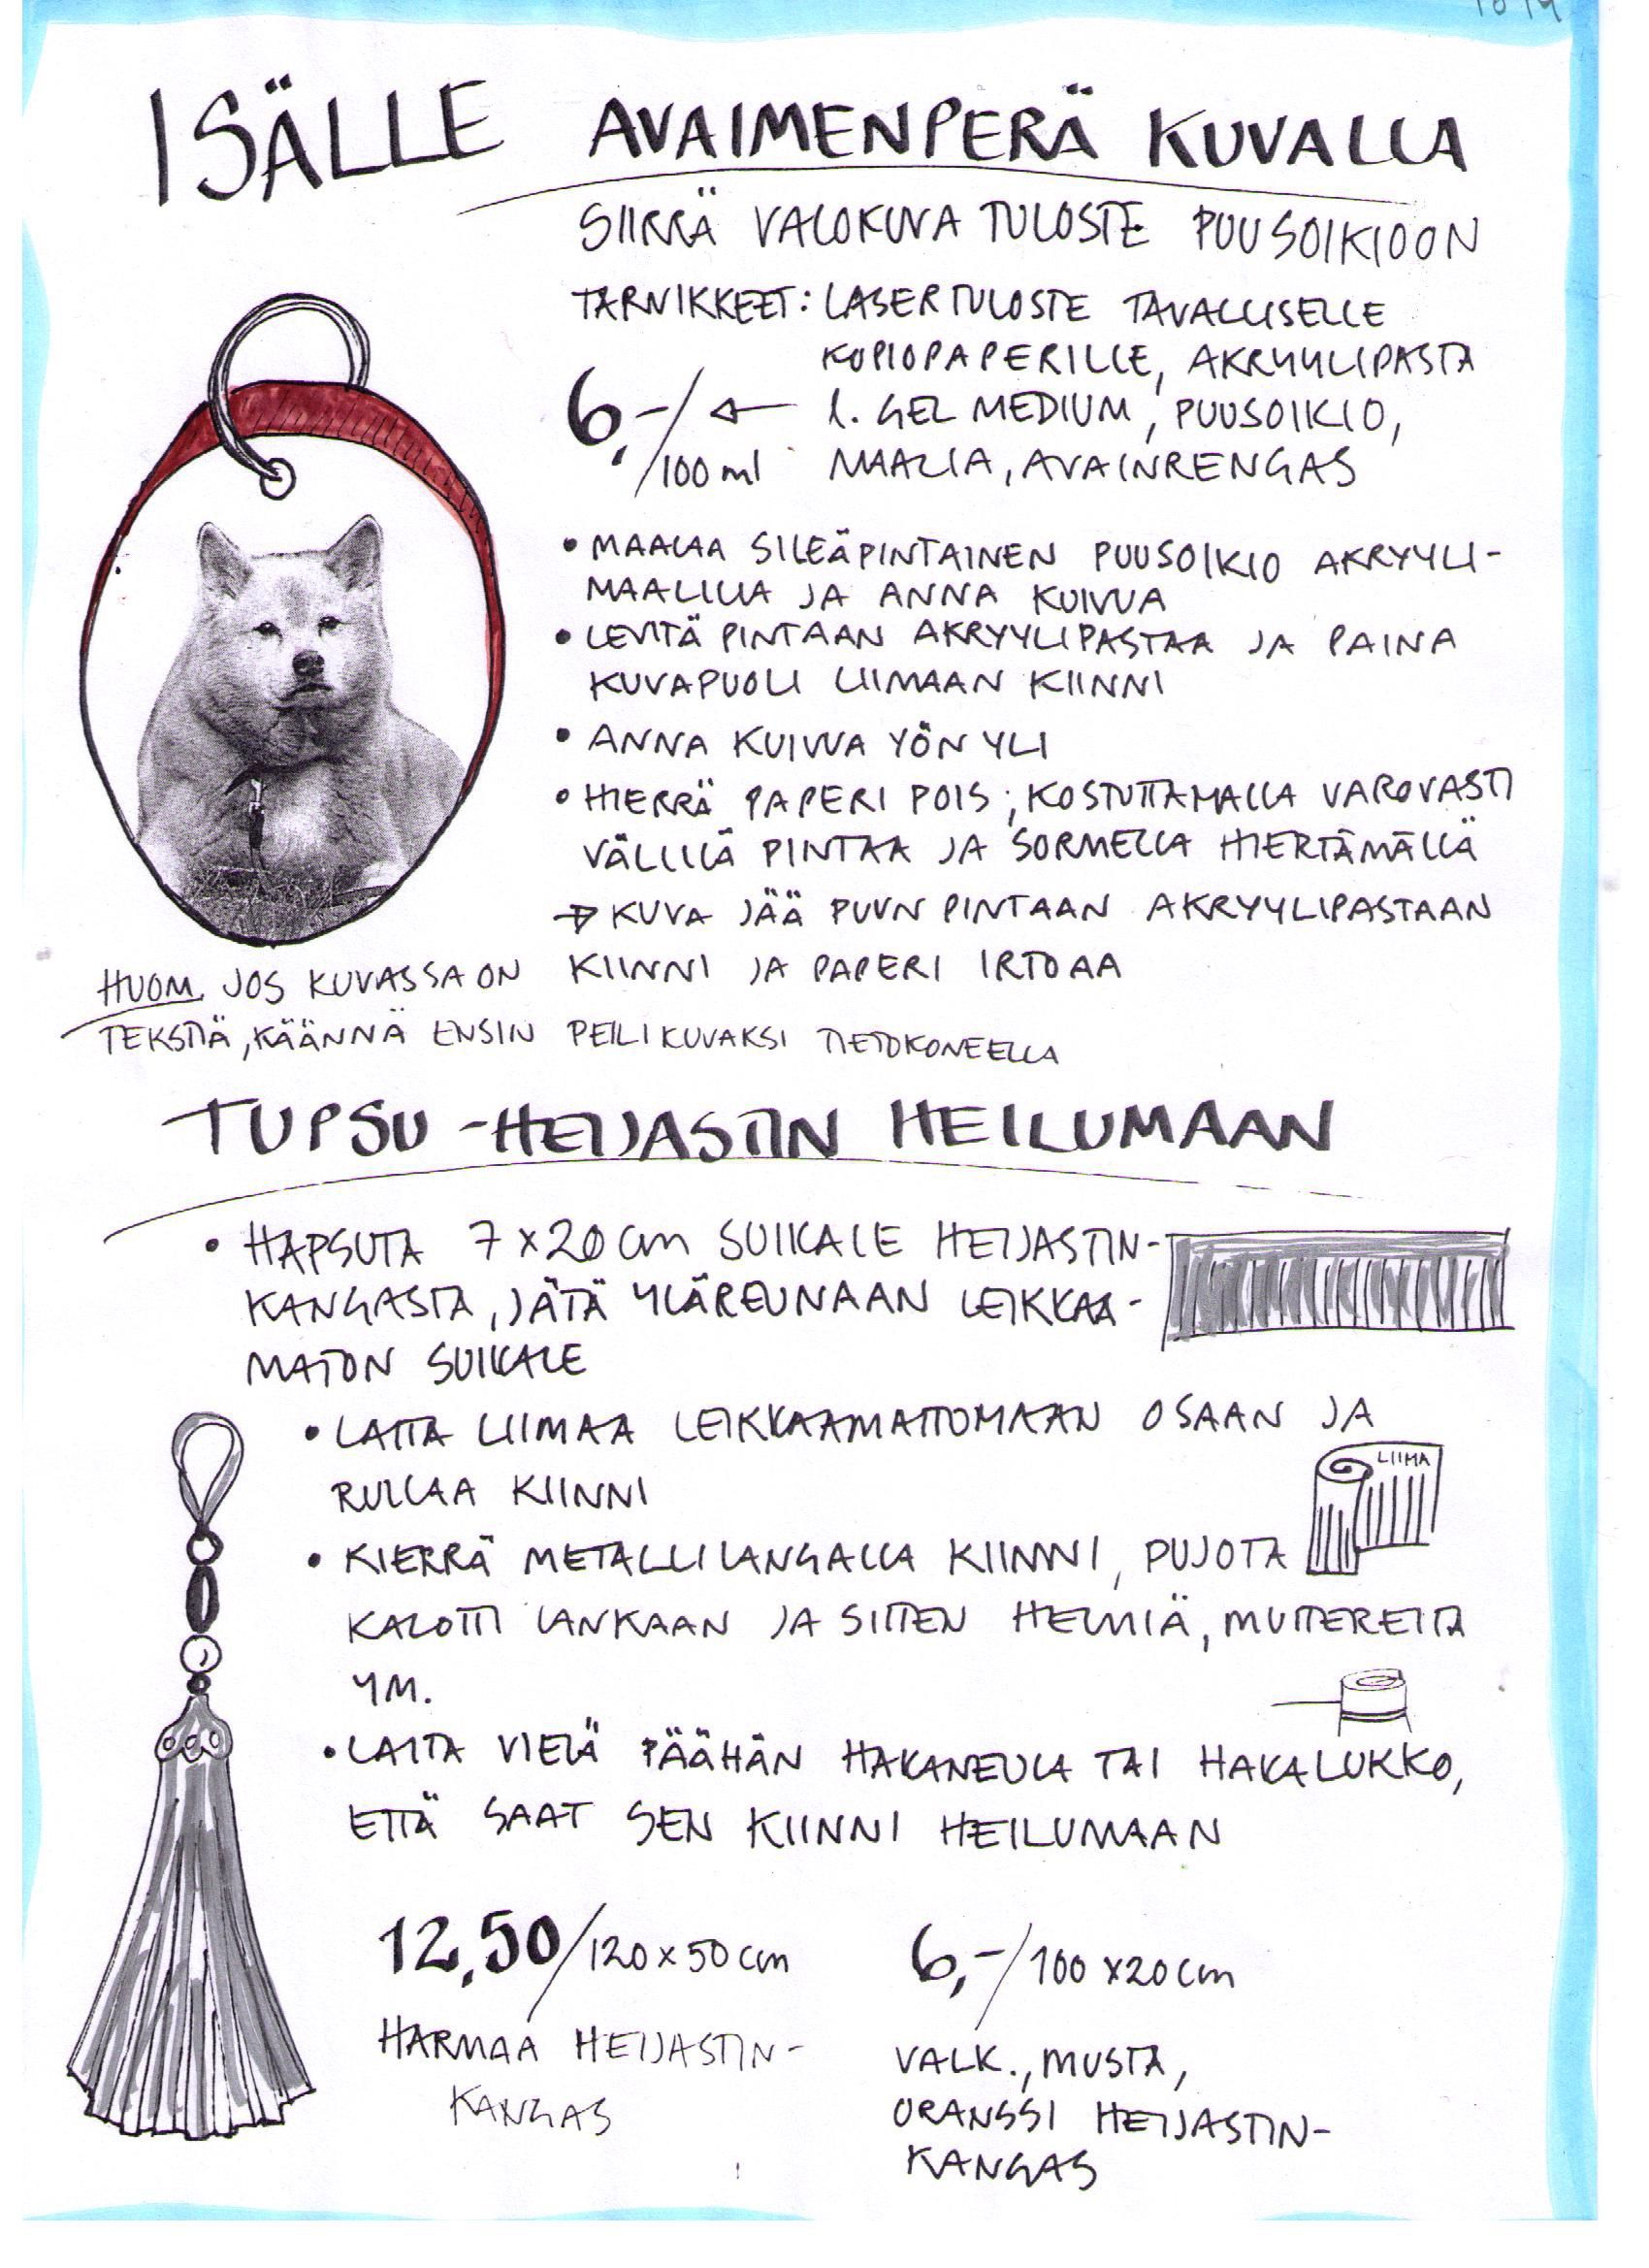 ISÄLLE AVAIMENPERÄ KUVALLA
SIIRRÄ VALOKUVA TULOSTE PUUSOIKIOON
TARVIKKEET: LASERTULOSTE TAVALLISELLE
KOPIOPAPERILLE, AKRYYLIPASTA
6,-/100 ml ← l. GEL MEDIUM, PUUSOIKIO,
MAALIA, AVAINRENGAS
• MAALAA SILEÄPINTAINEN PUUSOIKIO AKRYYLI-
MAALILLA JA ANNA KUIVUA
• LEVITÄ PINTAAN AKRYYLIPASTAA JA PAINA
KUVAPUOLI LIIMAAN KIINNI
• ANNA KUIVUA YÖN YLI
• HIERRÄ PAPERI POIS; KOSTUTTAMALLA VAROVASTI
VÄLILLÄ PINTAA JA SORMELLA HIERTÄMÄLLÄ
→ KUVA JÄÄ PUUN PINTAAN AKRYYLIPASTAAN
KIINNI JA PAPERI IRTOAA
HUOM. JOS KUVASSA ON
TEKSTIÄ, KÄÄNNÄ ENSIN PEILIKUVAKSI TIETOKONEELLA
TUPSU-HEIJASTIN HEILUMAAN
• HAPSUTA 7x20 cm SUIKALE HEIJASTIN-
KANGASTA, JÄTÄ YLÄREUNAAN LEIKKAA-
MATON SUIKALE
• LAITA LIIMAA LEIKKAAMATTOMAAN OSAAN JA
RULLAA KIINNI
LIIMA
• KIERRÄ METALLILANGALLA KIINNI, PUJOTA
KALOTTI LANKAAN JA SITTEN HELMIÄ, MUTTEREITA
YM.
• LAITA VIELÄ PÄÄHÄN HAKANEULA TAI HAKALUKKO,
ETTÄ SAAT SEN KIINNI HEILUMAAN
12,50/120x50 cm
HARMAA HEIJASTIN-
KANGAS
6,-/100x20 cm
VALK., MUSTA,
ORANSSI HEIJASTIN-
KANGAS